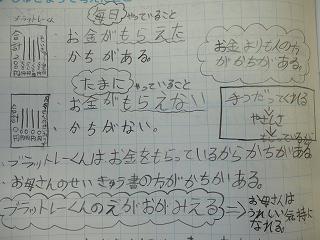 ブラットレーくん
毎日やっていること
お金がもらえた
かちがある。
お金よりも人の方
がかちがある。
たまにやっていること
お金がもらえない
かちがない。
手つだってくれる
やさしさ
ブラットレーくんはお金をもらっているからかちがある。
お母さんのせいきゅう書の方がかちがある。
ブラットレーくんのえがおがみえる
お母さんは
うれしい気持に
なれる。